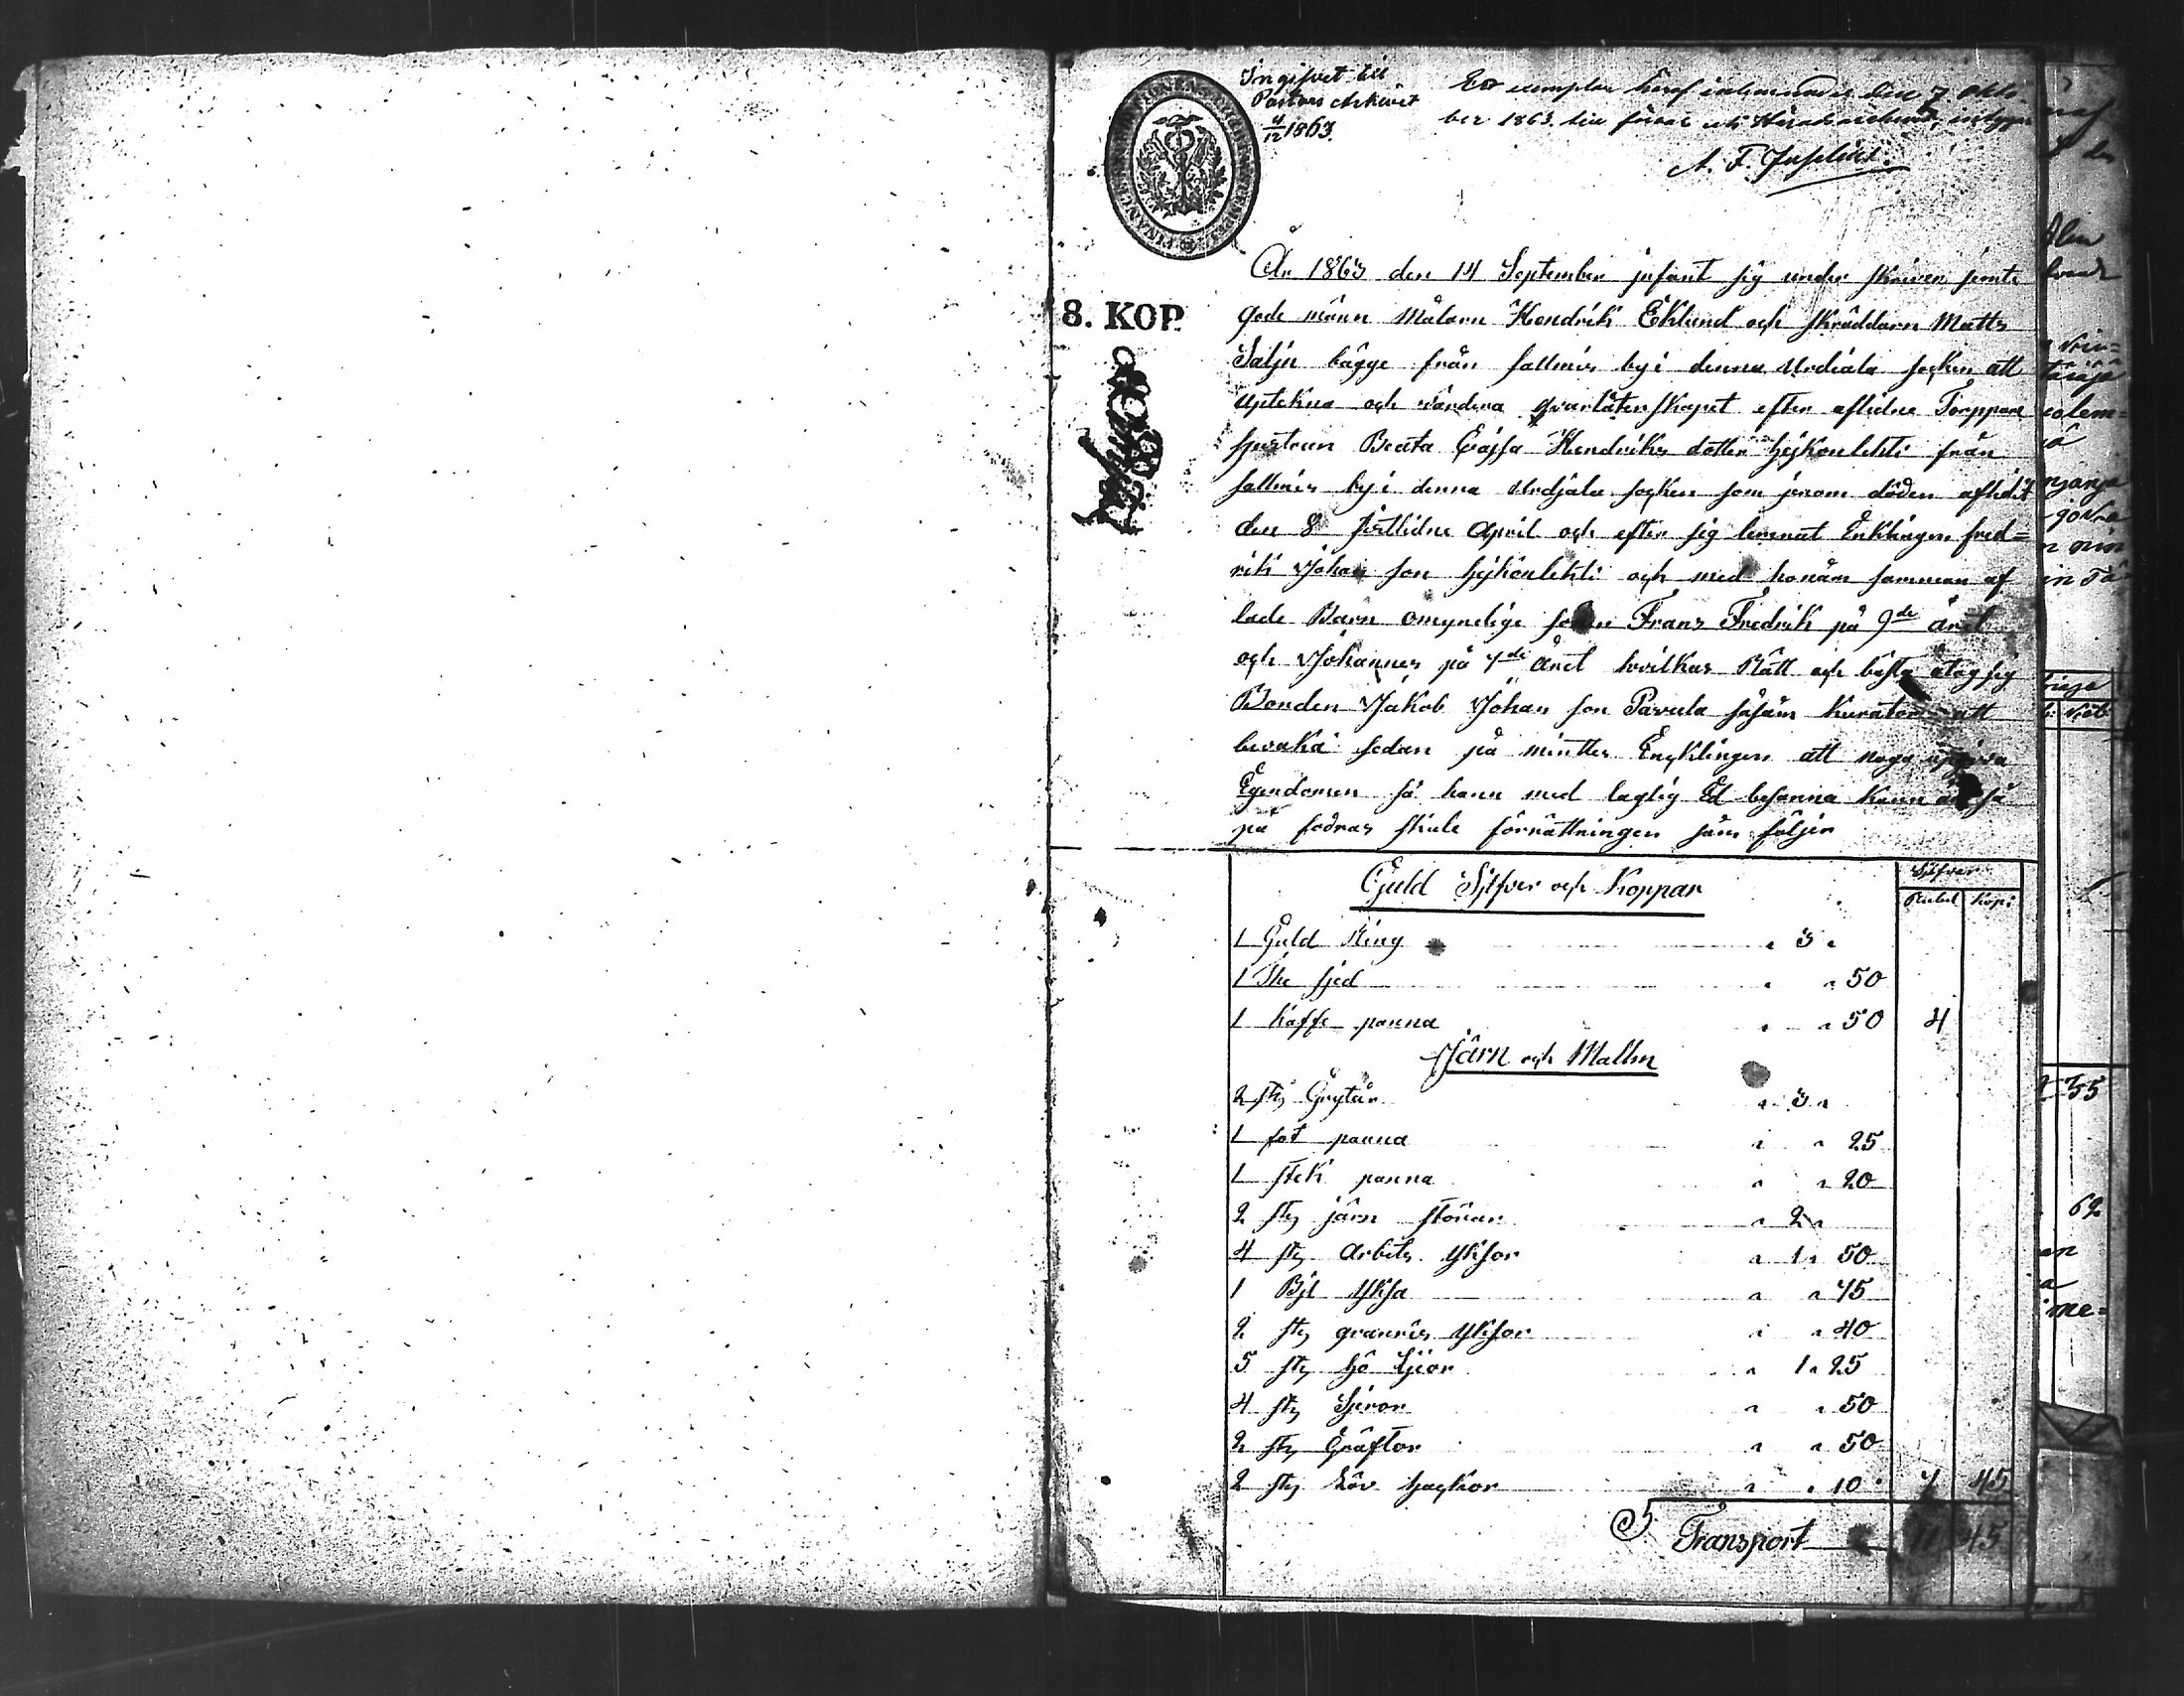 Ingifvet till
Pastors Arkivet
4/12 1863.
Ett exemplar häraf den 7 Okto-
ber 1863 till
A. F.
8. KOP.
År 1863 den 14 September infant sig under skriven jemte
gode männ Målarn Hendrik Eklund och skräddarn Matts
Salin bägge från sallmis by i denna Urdiala socken att
uptekna och värdera qvarlåtenskapet efter aflidne Torppare
hustrun Beata Cajsa Hendriks dotter Hejkonlehti från
sallmis by i denna Urdjala socken som jenom döden aflidit
den 8 sistlidne April och efter sig lemnat Enklingen fred=
rik Johan son Hejkonlehti och med honäm samman af
lade Barn omyndige sonen Frans Fredrik på 9de året
och Johannes på 4de Året hvilkas Rätt och bästa åtog sig
Bonden Jakob Johan son Pavula såsåm Kurator att
bevaka sedan på mintes Encklingen att noga uppgiva
Egendomen så hann med laglig Ed besanna kann
på fodras skule förrättningen såm följer
Guld Sylfver och Koppar
Sylfver
Rubel Kop:
1 Guld Ring " 3 "
1 Ske sjed " " 50
1 kaffe panna " " 50 4
Järn och Mallm
2 sty Grytår " 3 "
1 fot panna " " 25
1 stek panna " " 20
2 sty järn störar " 2 "
4 sty Arbets Yksor " 1 " 50
1 Bjl Yksa " " 45
2 sty granris Yksor " " 40
5 sty hö ljeor " 1 " 25
4 sty Sjeror " " 50
2 sty Gräftor " " 50
2 sty Löv hackor " " 10 7 45
Transport 11 45